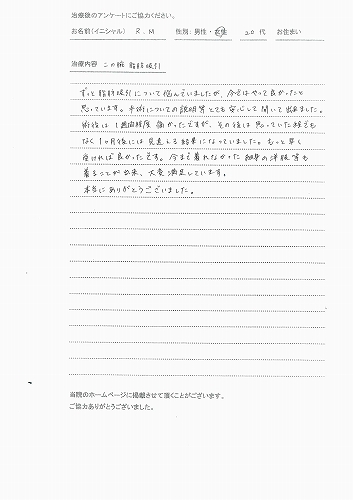 治療後のアンケートにご協力ください。
お名前(イニシャル) R.M 性別:男性・女性 20代 お住まい
治療内容 二の腕 脂肪吸引
ずっと脂肪吸引について悩んでいましたが、今ではやって良かったと
思っています。手術についての説明等とても安心して聞いて出来ました。
術後は1週間程度痛かったですが、その後は思っていた程でも
なく1ヶ月後には見違える結果になっていました。もっと早く
受ければ良かったです。今まで着れなかった細身の洋服等も
着ることが出来、大変満足しています。
本当にありがとうございました。
当院のホームページに掲載させて頂くことがございます。
ご協力ありがとうございました。